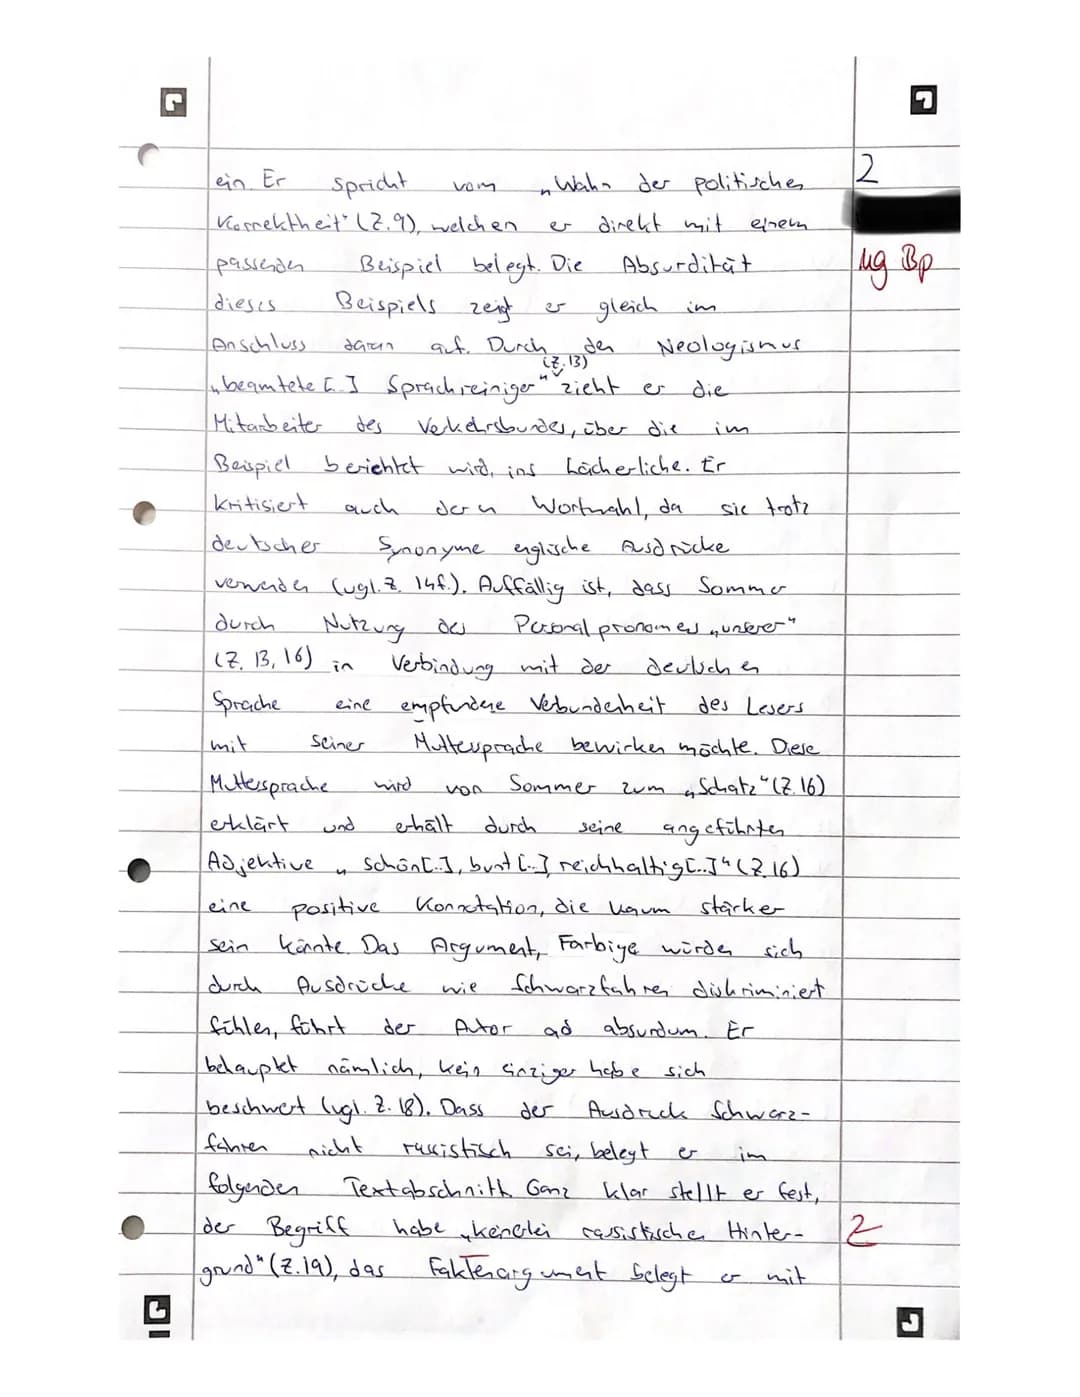 2
ein. Er spricht vom „Wahn der politischen
Korrektheit" (Z.9), welchen er direkt mit einem
passenden Beispiel belegt. Die Absurdität
ug Bp
dieses Beispiels zeigt er gleich im
Anschluss daran auf. Durch den Neologismus
(Z.13)
„beamtete [..] Sprachreiniger" zieht er die
Mitarbeiter des Verkehrsbundes, über die im
Beispiel berichtet wird, ins Lächerliche. Er
kritisiert auch deren Wortwahl, da sie trotz
deutscher Synonyme englische Ausdrücke
verwenden (vgl. Z. 14f.). Auffällig ist, dass Sommer
durch Nutzung des Personalpronomens „unserer"
(Z. 13, 16) in Verbindung mit der deutschen
Sprache eine empfundene Verbundenheit des Lesers
mit seiner Muttersprache bewirken möchte. Diese
Muttersprache wird von Sommer zum „Schatz" (Z. 16)
erklärt und erhält durch seine angeführten
Adjektive „schön[..], bunt [..] reichhaltig[..]" (Z.16)
eine positive Konnotation, die kaum stärker
sein könnte. Das Argument, Farbige würden sich
durch Ausdrücke wie Schwarzfahren diskriminiert
fühlen, führt der Autor ad absurdum. Er
behauptet nämlich, kein einziger habe sich
beschwert (vgl. Z. 18). Dass der Ausdruck Schwarz-
fahren nicht rassistisch sei, belegt er im
folgenden Textabschnitt. Ganz klar stellt er fest,
der Begriff habe „keinerlei rassistischen Hinter-
2
grund" (Z.19), das Faktenargument belegt er mit